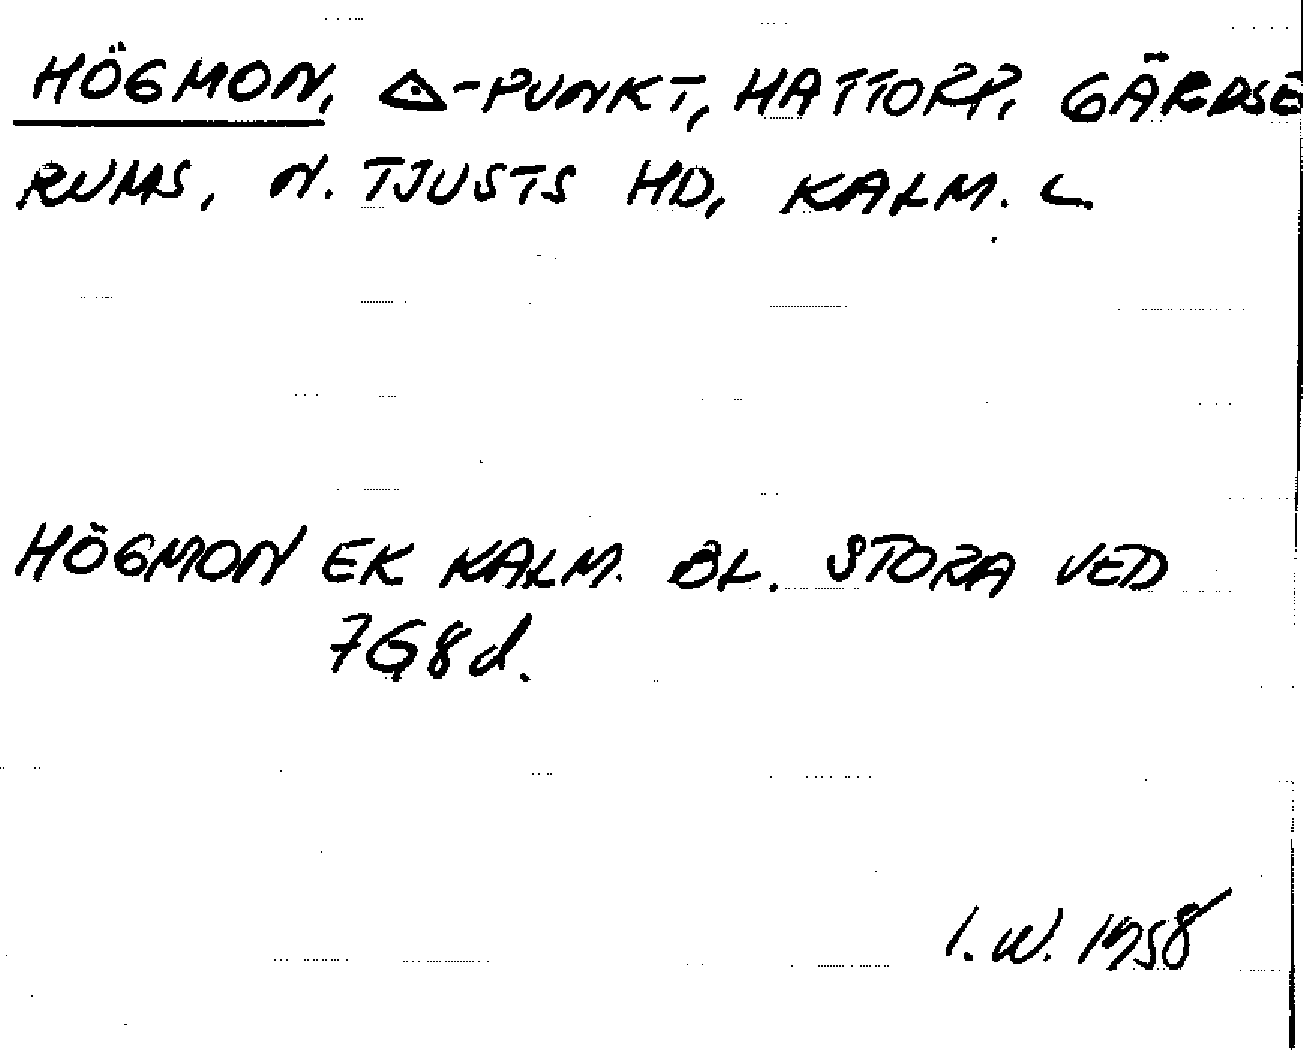 HÖGMON, △-PUNKT, HATTORP, GÄRDSE
RUMS, N. TJUSTS HD, KALM. L.
HÖGMON EK KALM. BL. STORA VED
7G8d.
I.W. 1958